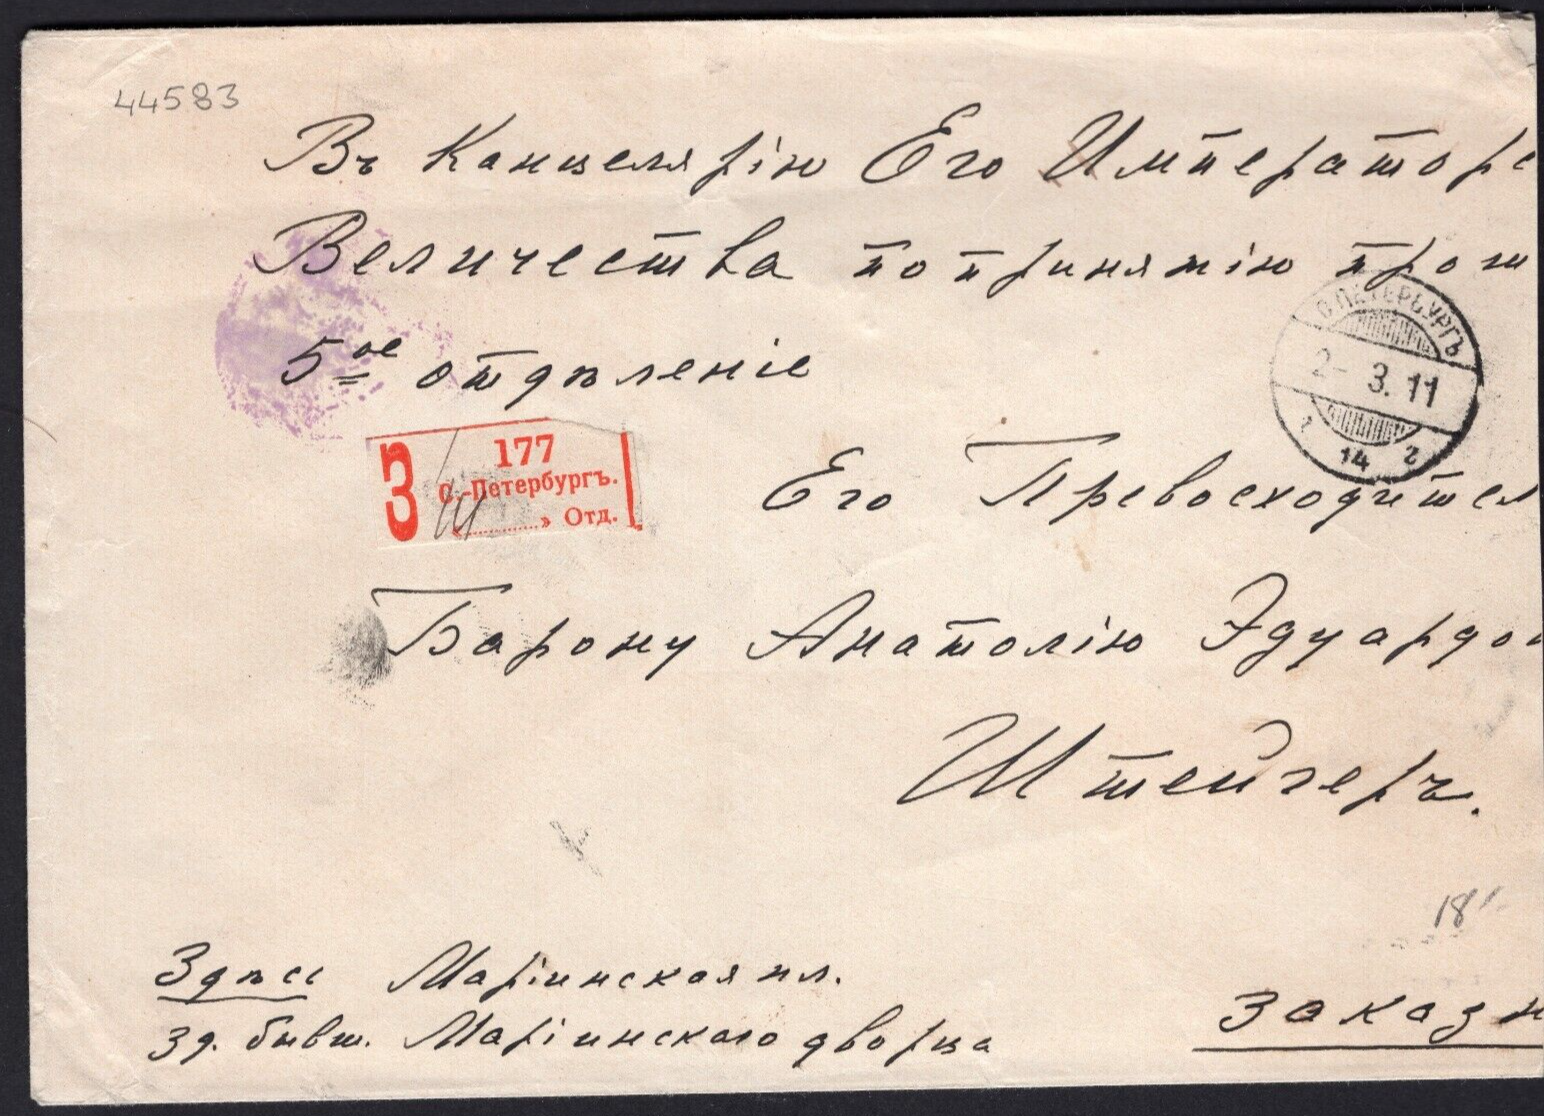 44583
Въ Канцелярію Его Императорс
Величества по принятію прош
5ое отдѣленіе
С.ПЕТЕРБУРГЪ
2- 3. 11
14
2
З
177
С.-Петербургъ.
» Отд.
Его Превосходител
Барону Анатолію Эдуардов
Штейгеръ.
18/-
Здѣсь Маріинская пл.
зд. бывш. Маріинскаго дворца
Заказн